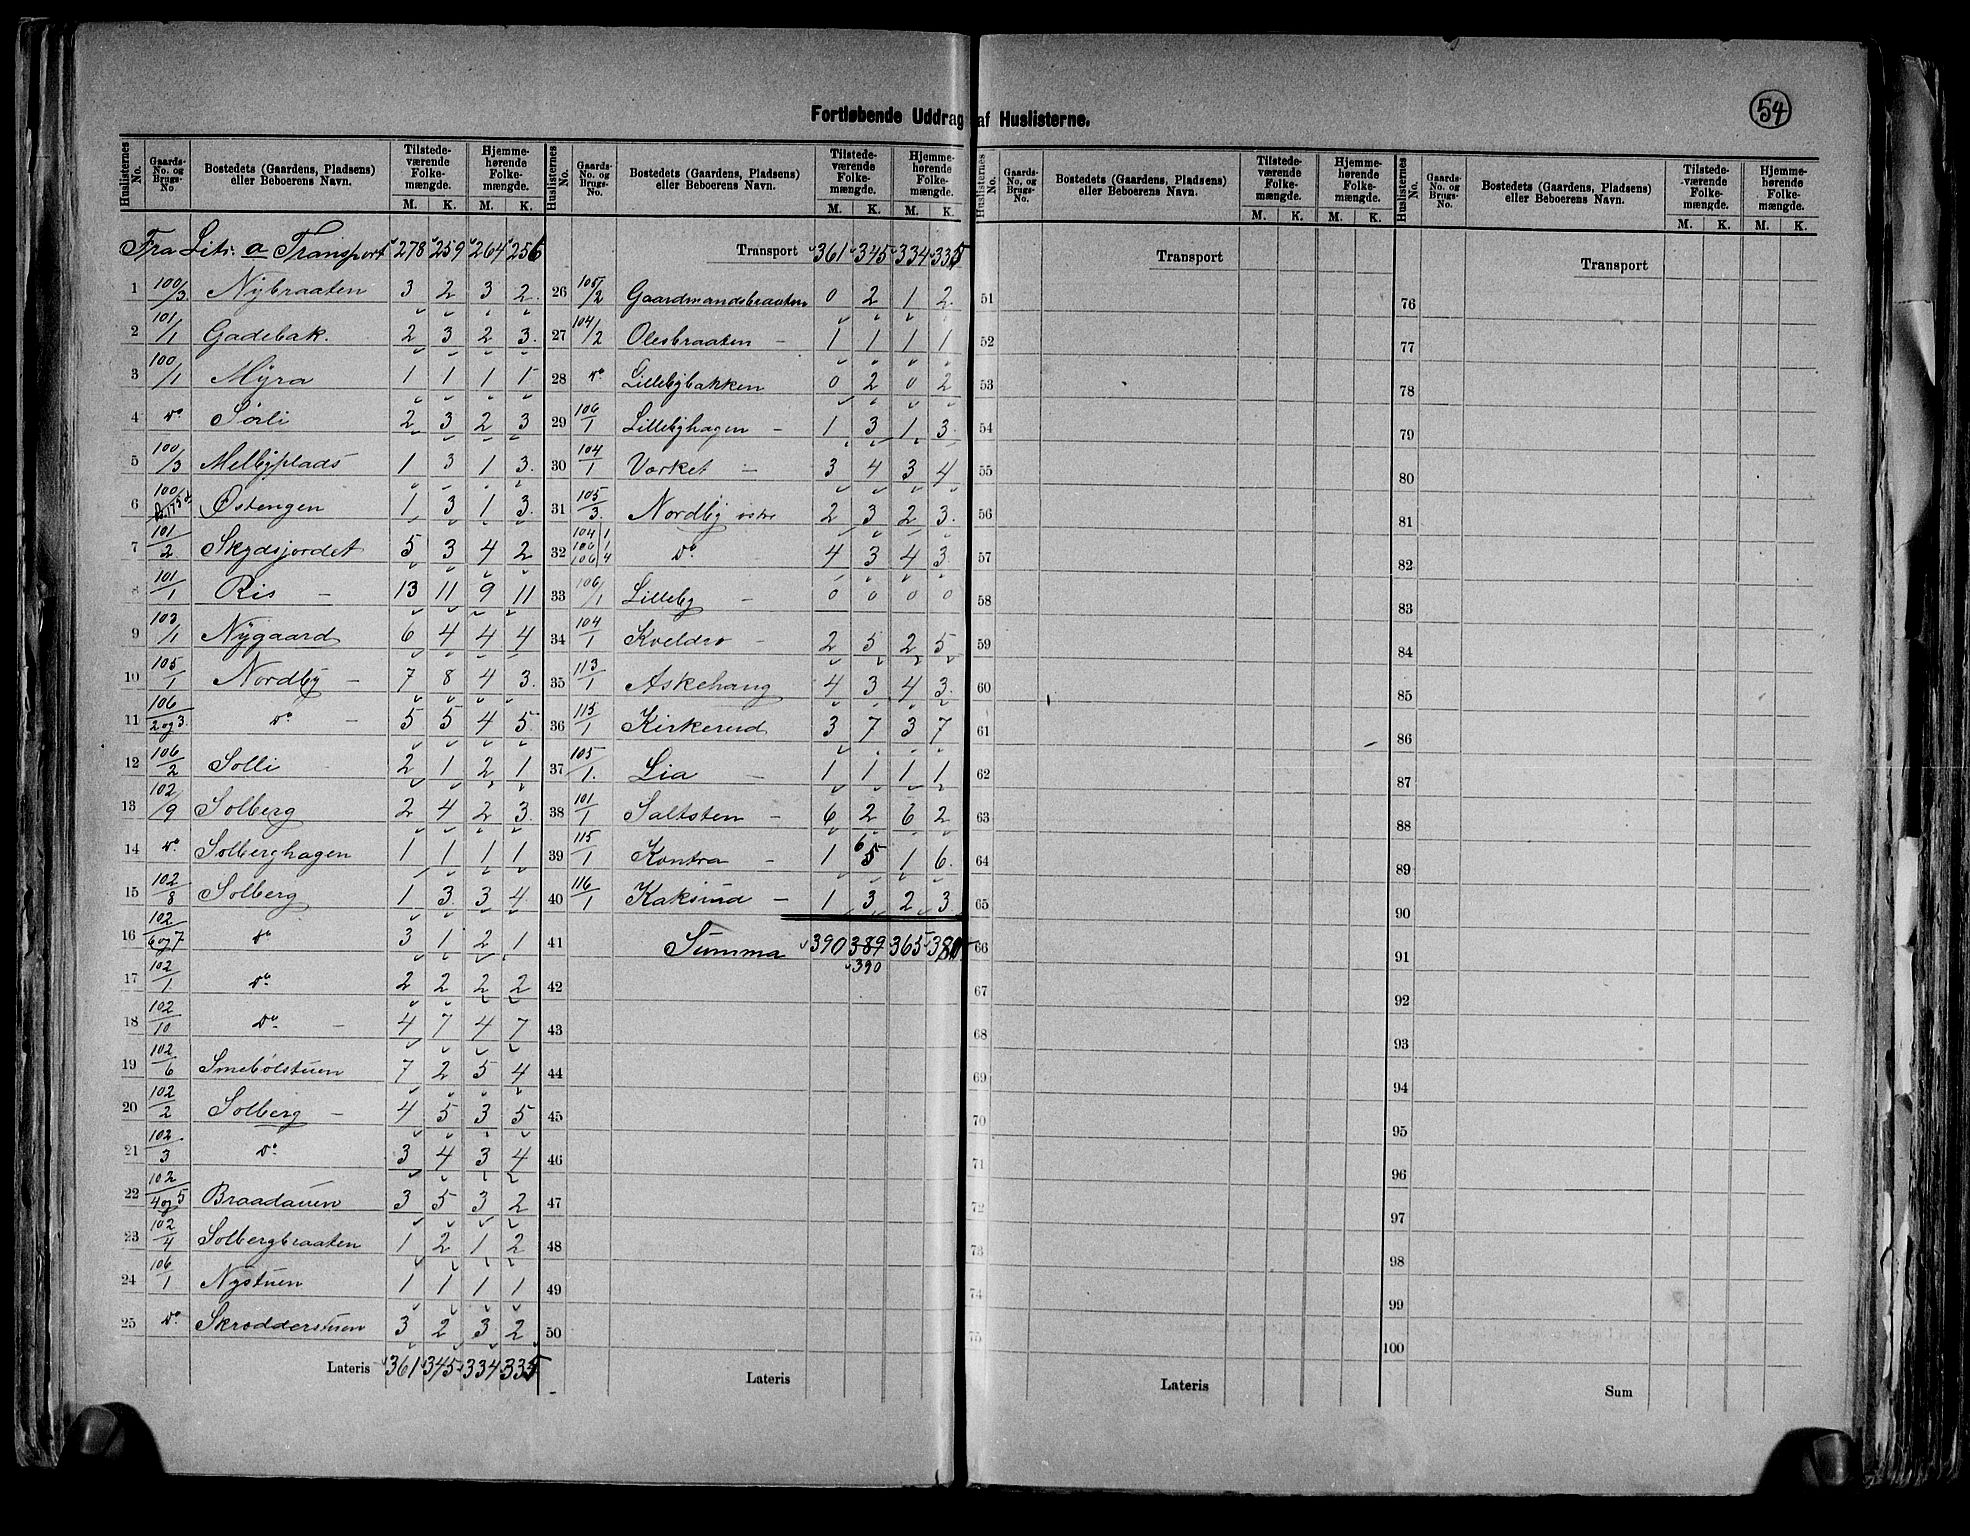 54
Fortløbende Uddrag af Huslisterne.
Huslisternes No. Gaards-No. og Brugs-No. Bostedets (Gaardens, Pladsens) eller Beboerens Navn. Tilstede-værende Folke-mængde. M. K. Hjemme-hørende Folke-mængde. M. K.
Fra Litr. a Transport 278 259 264 256
1 100/3 Nybraaten 3 2 3 2
2 101/1 Gadebak. 2 3 2 3.
3 100/1 Myra 1 1 1 1
4 do Sørli 2 3 2 3
5 100/3 Melbyplads 1 3 1 3.
6 100/ Østengen 1 3 1 3.
7 101/2 Skydsjordet 5 3 4 2
8 101/1 Ris - 13 11 9 11
9 103/1 Nygaard 6 4 4 4
10 105/1 Nordby - 7 8 4 3.
11 106/2 og 3. do - 5 5 4 5.
12 106/2 Solli - 2 1 2 1
13 102/9 Solberg 2 4 2 3.
14 do Solberghagen 1 1 1 1
15 102/8 Solberg 1 3 3 4
16 102/6 og 7 do 3 1 2 1
17 102/1. do 2 2 2 2
18 102/10 do - 4 7 4 7
19 102/6 Smebølstuen 7 2 5 4
20 102/2 Solberg - 4 5 3 5
21 102/3 do 3 4 3 4
22 102/4 og 5 Braadauen 3 5 3 2
23 102/4 Solbergbraaten 1 2 1 2
24 106/1 Nystuen 1 1 1 1
25 do Skrødderstuen 3 2 3 2
Lateris 361 345 334 335
Huslisternes No. Gaards-No. og Brugs-No. Bostedets (Gaardens, Pladsens) eller Beboerens Navn. Tilstede-værende Folke-mængde. M. K. Hjemme-hørende Folke-mængde. M. K.
Transport 361 345 334 335
26 105/2 Gaardmandsbraaten 0 2 1 2.
27 104/2 Olesbraaten - 1 1 1 1
28 do Lillebybakken 0 2 0 2
29 106/1 Lillebyhagen - 1 3 1 3.
30 104/1 Vorket - 3 4 3 4
31 105/3. Nordby østre 2 3 2 3.
32 104/1 100/1 106/4 do 4 3 4 3
33 106/1 Lilleby - 0 0 0 0
34 104/1 Kveldro - 2 5 2 5
35 113/1 Askehaug 4 3 4 3.
36 115/1 Kirkerud 3 7 3 7
37 105/1. Lia - 1 1 1 1
38 101/1 Saltsten - 6 2 6 2
39 115/1 Kontra - 1 5 6 1 6.
40 116/1 Kaksrud - 1 3 2 3
41 Summa 390 389 365
390
42
43
44
45
46
47
48
49
50
Lateris
Huslisternes No. Gaards-No. og Brugs-No. Bostedets (Gaardens, Pladsens) eller Beboerens Navn. Tilstede-værende Folke-mængde. M. K. Hjemme-hørende Folke-mængde. M. K.
Transport
51
52
53
54
55
56
57
58
59
60
61
62
63
64
65
66
67
68
69
70
71
72
73
74
75
Lateris
Huslisternes No. Gaards-No. og Brugs-No. Bostedets (Gaardens, Pladsens) eller Beboerens Navn. Tilstede-værende Folke-mængde. M. K. Hjemme-hørende Folke-mængde. M. K.
Transport
76
77
78
79
80
81
82
83
84
85
86
87
88
89
90
91
92
93
94
95
96
97
98
99
100
Sum